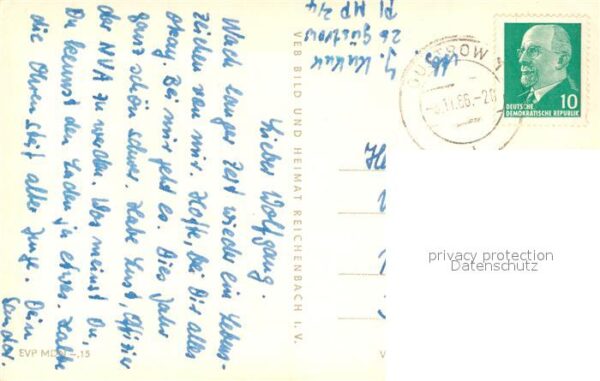 Lieber Wolfgang.
Nach langer Zeit wieder ein Lebens-
zeichen von mir. Hoffe, bei Dir alles
okay. Bei mir geht es. Dies Jahr
ganz schön schwer. Habe Lust, Offizier
der NVA zu werden. Was meinst Du,
Du kennst den Laden ja etwas. Halte
die Ohren steif alter Junge. Dein
Sandor.
EVP MDN -,15
VEB BILD UND HEIMAT REICHENBACH I. V.
Abs.
26 Güstrow
GÜSTROW
11.66.-20
DEUTSCHE
DEMOKRATISCHE REPUBLIK
10
privacy protection
Datenschutz
V